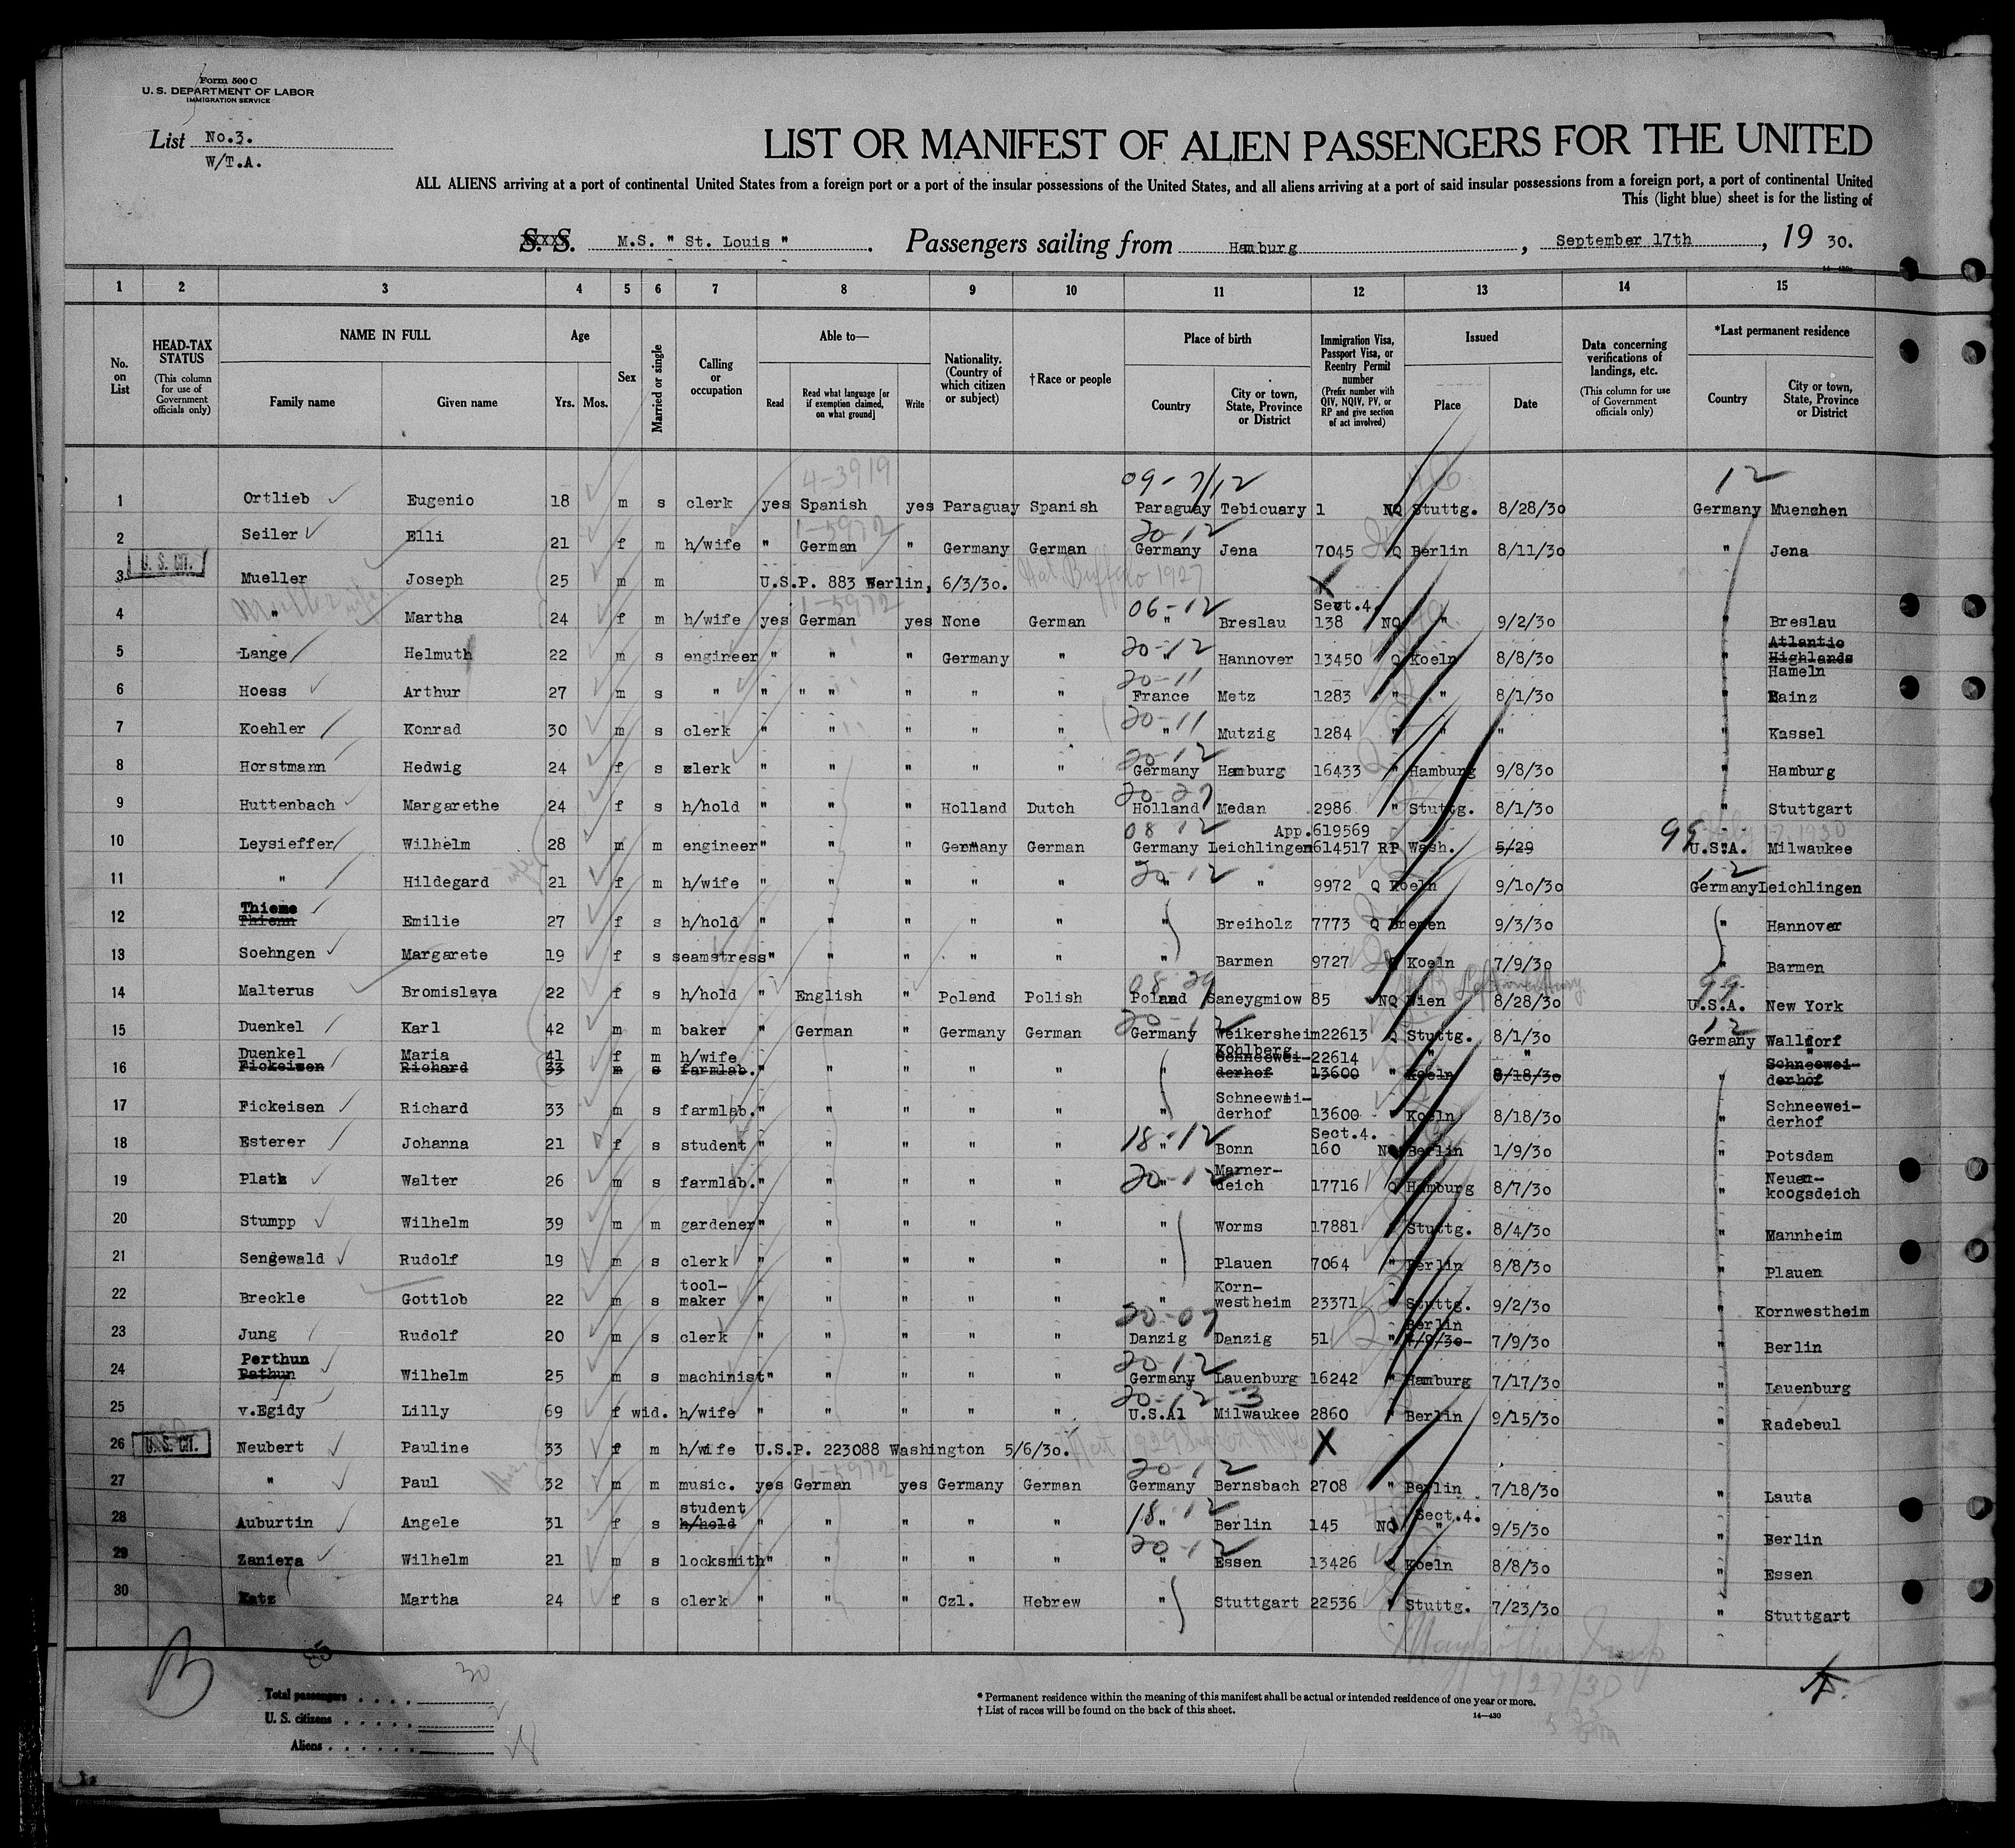 Form 500 C
U. S. DEPARTMENT OF LABOR
IMMIGRATION SERVICE
List No.3.
W/T.A.
LIST OR MANIFEST OF ALIEN PASSENGERS FOR THE UNITED
ALL ALIENS arriving at a port of continental United States from a foreign port or a port of the insular possessions of the United States, and all aliens arriving at a port of said insular possessions from a foreign port, a port of continental United
This (light blue) sheet is for the listing of
S. S. M.S. " St. Louis " . Passengers sailing from Hamburg , September 17th , 19 30.
1 2 3 4 5 6 7 8 9 10 11 12 13 14 15
No. on List
HEAD-TAX STATUS (This column for use of Government officials only)
NAME IN FULL
Family name Given name
Age
Yrs. Mos.
Sex
Married or single
Calling or occupation
Able to—
Read Read what language [or if exemption claimed, on what ground] Write
Nationality. (Country of which citizen or subject)
†Race or people
Place of birth
Country City or town, State, Province or District
Immigration Visa, Passport Visa, or Reentry Permit number (Prefix number with QIV, NQIV, PV, or RP and give section of act involved)
Issued
Place Date
Data concerning verifications of landings, etc. (This column for use of Government officials only)
*Last permanent residence
Country City or town, State, Province or District
4-3919 09-7/12 12
1 Ortlieb Eugenio 18 m s clerk yes Spanish yes Paraguay Spanish Paraguay Tebicuary 1 NQ Stuttg. 8/28/30 Germany Muenchen
1-5972 20-12
2 Seiler Elli 21 f m h/wife " German " Germany German Germany Jena 7045 Q Berlin 8/11/30 " Jena
U. S. CIT.
3 Mueller Joseph 25 m m U.S.P. 883 Berlin, 6/3/30. Nat. Buffalo 1927 X
1-5972 06-12 Sect.4.
4 " Martha 24 f m h/wife yes German yes None German " Breslau 138 NQ " 9/2/30 " Breslau
20-12 Atlantic Highlands
5 Lange Helmuth 22 m s engineer " " " Germany " " Hannover 13450 Q Koeln 8/8/30 " Hameln
20-11
6 Hoess Arthur 27 m s " " " " " " " France Metz 1283 " " 8/1/30 " Mainz
20-11
7 Koehler Konrad 30 m s clerk " " " " " " Mutzig 1284 " " " Kassel
20-12
8 Horstmann Hedwig 24 f s clerk " " " " " Germany Hamburg 16433 " Hamburg 9/8/30 " Hamburg
20-27
9 Huttenbach Margarethe 24 f s h/hold " " " Holland Dutch Holland Medan 2986 " Stuttg. 8/1/30 " Stuttgart
08 12 App.619569 99
10 Leysieffer Wilhelm 28 m m engineer " " " Germany German Germany Leichlingen 614517 RP Wash. 5/29 U.S.A. Milwaukee
20-12 12
11 " Hildegard 21 f m h/wife " " " " " " " 9972 Q Koeln 9/10/30 Germany Leichlingen
Thieme
12 Thienn Emilie 27 f s h/hold " " " " " " Breiholz 7773 Q Bremen 9/3/30 " Hannover
13 Soehngen Margarete 19 f s seamstress " " " " " " Barmen 9727 " Koeln 7/9/30 " Barmen
08 29 99
14 Malterus Bromislava 22 f s h/hold " English " Poland Polish Poland Saneygmiow 85 NQ Wien 8/28/30 U.S.A. New York
20-12 12
15 Duenkel Karl 42 m m baker " German " Germany German Germany Weikersheim 22613 Q Stuttg. 8/1/30 Germany Walldorf
Duenkel Maria 41 f m h/wife Kohlberg 22614 " " "
16 Fickeisen Richard 33 m s farmlab. " " " " " " Schneeweiderhof 13600 " Koeln 8/18/30 " Schneeweiderhof
17 Fickeisen Richard 33 m s farmlab. " " " " " " Schneeweiderhof 13600 " Koeln 8/18/30 " Schneeweiderhof
18-12 Sect.4.
18 Esterer Johanna 21 f s student " " " " " " Bonn 160 NQ Berlin 1/9/30 " Potsdam
20-12
19 Plath Walter 26 m s farmlab. " " " " " " Marnerdeich 17716 Q Hamburg 8/7/30 " Neuenkoogsdeich
20 Stumpp Wilhelm 39 m m gardener " " " " " " Worms 17881 " Stuttg. 8/4/30 " Mannheim
21 Sengewald Rudolf 19 m s clerk " " " " " " Plauen 7064 " Berlin 8/8/30 " Plauen
22 Breckle Gottlob 22 m s toolmaker " " " " " " Kornwestheim 23371 " Stuttg. 9/2/30 " Kornwestheim
20-07 Berlin
23 Jung Rudolf 20 m s clerk " " " " " Danzig Danzig 51 " 7/9/30 7/9/30 " Berlin
Perthun 20-12
24 Pathun Wilhelm 25 m s machinist " " " " " Germany Lauenburg 16242 " Hamburg 7/17/30 " Lauenburg
20-12 3
25 v.Egidy Lilly 69 f wid. h/wife " " " " " U.S.A1 Milwaukee 2860 " Berlin 9/15/30 " Radebeul
U. S. CIT.
26 Neubert Pauline 33 f m h/wife U.S.P. 223088 Washington 5/6/30. X
1-5972 20-12
27 " Paul 32 m m music. yes German yes Germany German Germany Bernsbach 2708 " Berlin 7/18/30 " Lauta
student 18-12 Sect.4.
28 Auburtin Angele 31 f s h/hold " " " " " " Berlin 145 NQ " 9/5/30 " Berlin
20-12
29 Zaniera Wilhelm 21 m s locksmith " " " " " " Essen 13426 Q Koeln 8/8/30 " Essen
30 Katz Martha 24 f s clerk " " " Czl. Hebrew " Stuttgart 22536 " Stuttg. 7/23/30 " Stuttgart
B
Total passengers . . . . 30
U. S. citizens . . . . . 2
Aliens . . . . . . 28
* Permanent residence within the meaning of this manifest shall be actual or intended residence of one year or more.
† List of races will be found on the back of this sheet.
14—430
9/27/30